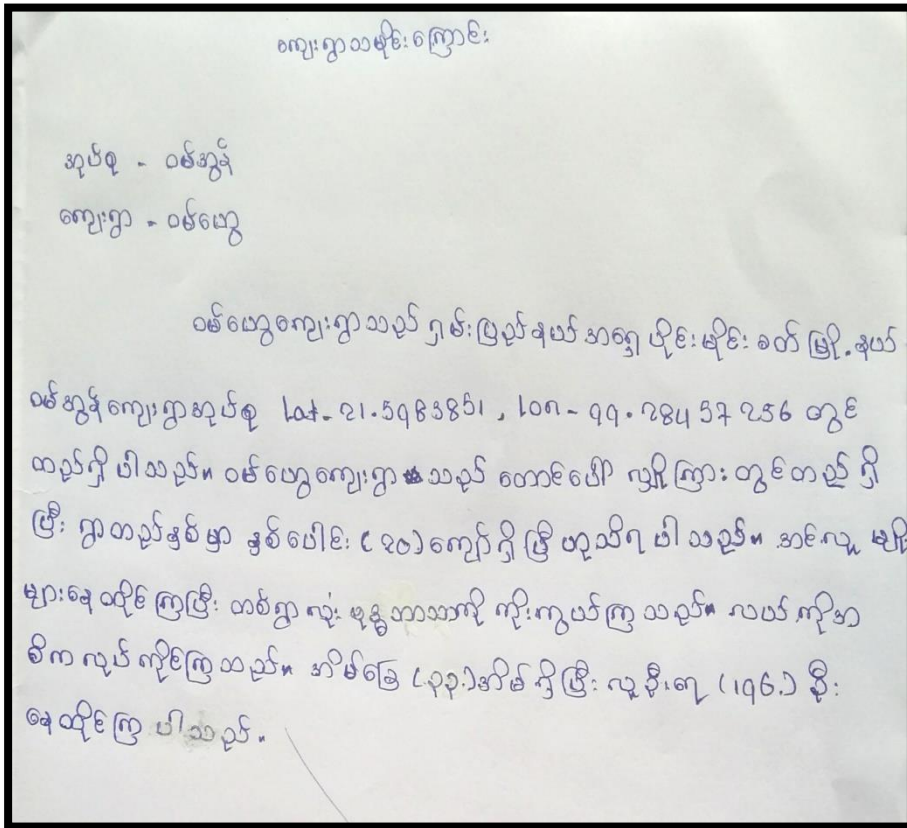 ကျေးရွာသမိုင်းကြောင်း
အုပ်စု - ဝမ်အွန်
ကျေးရွာ - ဝမ်ဟွေ
ဝမ်ဟွေကျေးရွာသည် ရှမ်းပြည်နယ် အရှေ့ပိုင်း မိုင်းခတ်မြို့နယ်
ဝမ်အွန်ကျေးရွာအုပ်စု Lat-21.5983851, Lon-99.28457256 တွင်
တည်ရှိပါသည်။ ဝမ်ဟွေကျေးရွာ သည် တောင်ပေါ် လျှိုကြားတွင်တည်ရှိ
ပြီး ရွာတည်နှစ်မှာ နှစ်ပေါင်း (၃၀)ကျော်ရှိပြီ ဟုသိရပါသည်။ အင်လူမျိုး
များနေထိုင်ကြပြီး တစ်ရွာလုံး ဗုဒ္ဓဘာသာကို ကိုးကွယ်ကြသည်။ လယ်ကိုအ
ဓိကလုပ်ကိုင်ကြသည်။ အိမ်ခြေ (၃၃)အိမ်ရှိပြီး လူဦးရေ (196.) ဦး
နေထိုင်ကြပါသည်။